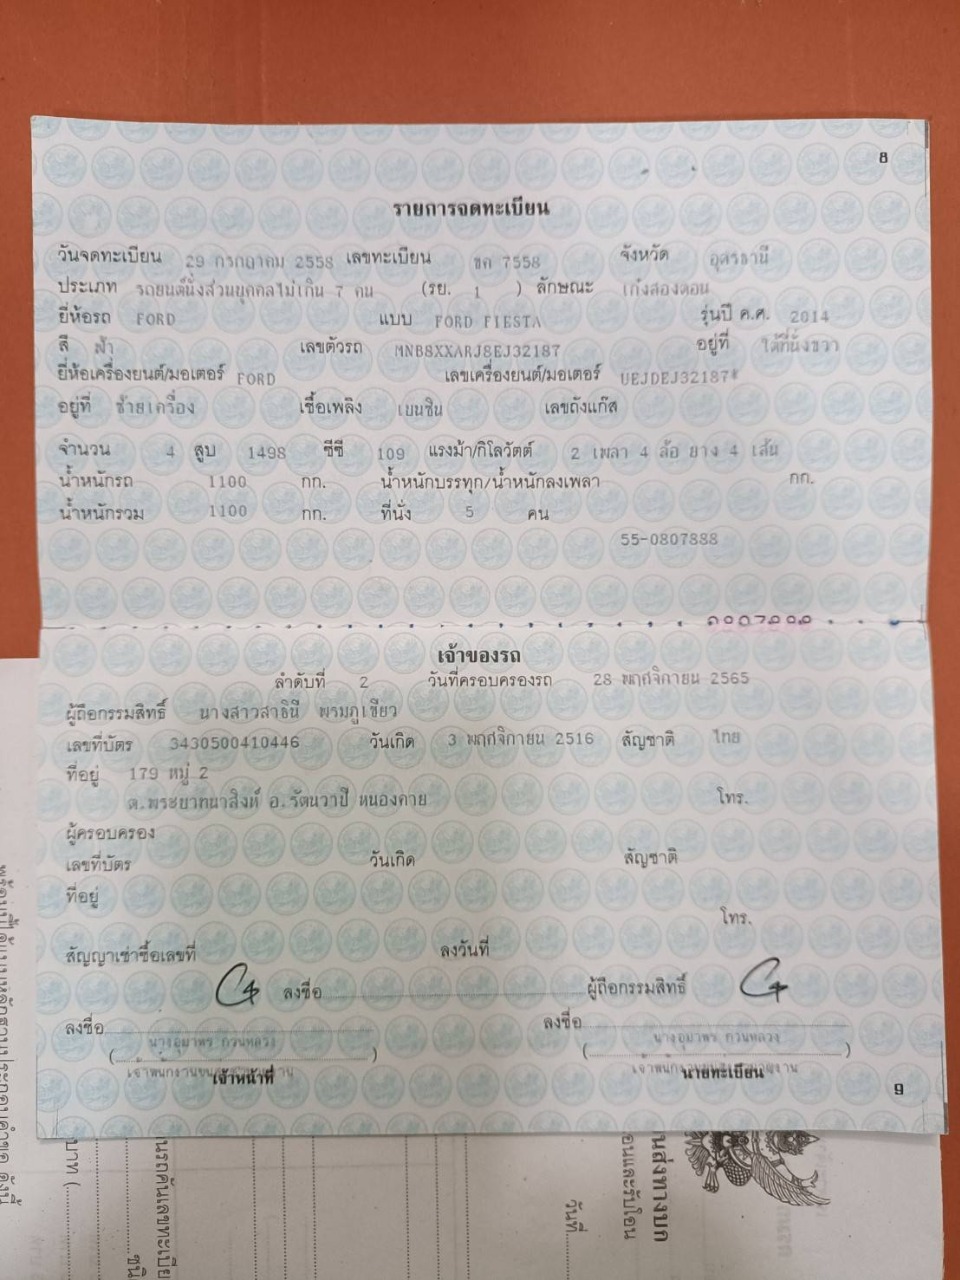 8
รายการจดทะเบียน
วันจดทะเบียน 29 กรกฎาคม 2558 เลขทะเบียน ขค 7558 จังหวัด อุดรธานี
ประเภท รถยนต์นั่งส่วนบุคคลไม่เกิน 7 คน (รย. 1 ) ลักษณะ เก๋งสองตอน
ยี่ห้อรถ FORD แบบ FORD FIESTA รุ่นปี ค.ศ. 2014
สี ฟ้า เลขตัวรถ MNBSXXARJSEJ32187 อยู่ที่ ใต้ที่นั่งขวา
ยี่ห้อเครื่องยนต์/มอเตอร์ FORD เลขเครื่องยนต์/มอเตอร์ UEJDEJ32187*
อยู่ที่ ซ้ายเครื่อง เชื้อเพลิง เบนซิน เลขถังแก๊ส
จำนวน 4 สูบ 1498 ซีซี 109 แรงม้า/กิโลวัตต์ 2 เพลา 4 ล้อ ยาง 4 เส้น
น้ำหนักรถ 1100 กก. น้ำหนักบรรทุก/น้ำหนักลงเพลา กก.
น้ำหนักรวม 1100 กก. ที่นั่ง 5 คน
55-0807888
เจ้าของรถ
ลำดับที่ 2 วันที่ครอบครองรถ 28 พฤศจิกายน 2565
ผู้ถือกรรมสิทธิ์ นางสาวสาธินี พรมภูเขียว
เลขที่บัตร 3430500410446 วันเกิด 3 พฤศจิกายน 2516 สัญชาติ ไทย
ที่อยู่ 179 หมู่ 2
ต.พระบาทนาสิงห์ อ.รัตนวาปี หนองคาย โทร.
ผู้ครอบครอง
เลขที่บัตร วันเกิด สัญชาติ
ที่อยู่
โทร.
สัญญาเช่าซื้อเลขที่ ลงวันที่
ลงชื่อ ผู้ถือกรรมสิทธิ์
ลงชื่อ ลงชื่อ
(นางอุมาพร กวนหลวง) (นางอุมาพร กวนหลวง)
เจ้าหน้าที่ นายทะเบียน
9